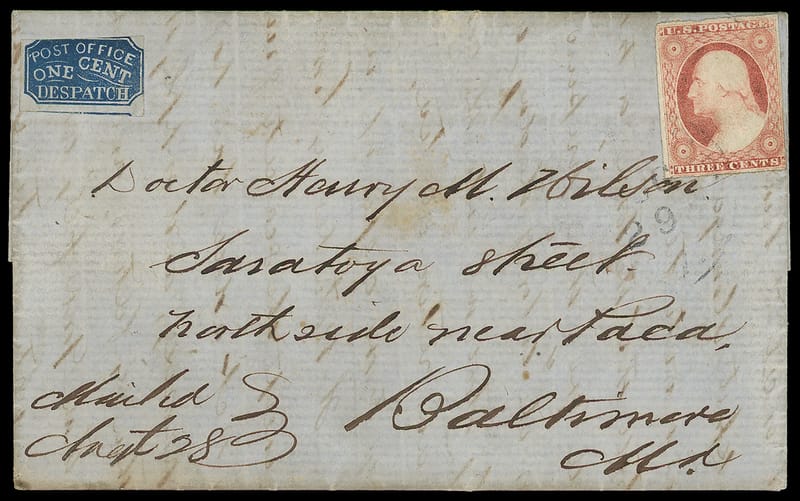 POST OFFICE
ONE CENT
DESPATCH
U.S. POSTAGE
THREE CENTS
Doctor Henry M. Wilson
29
Saratoga street
north side near Paca,
Mailed
Augt 28
Baltimore
Md.